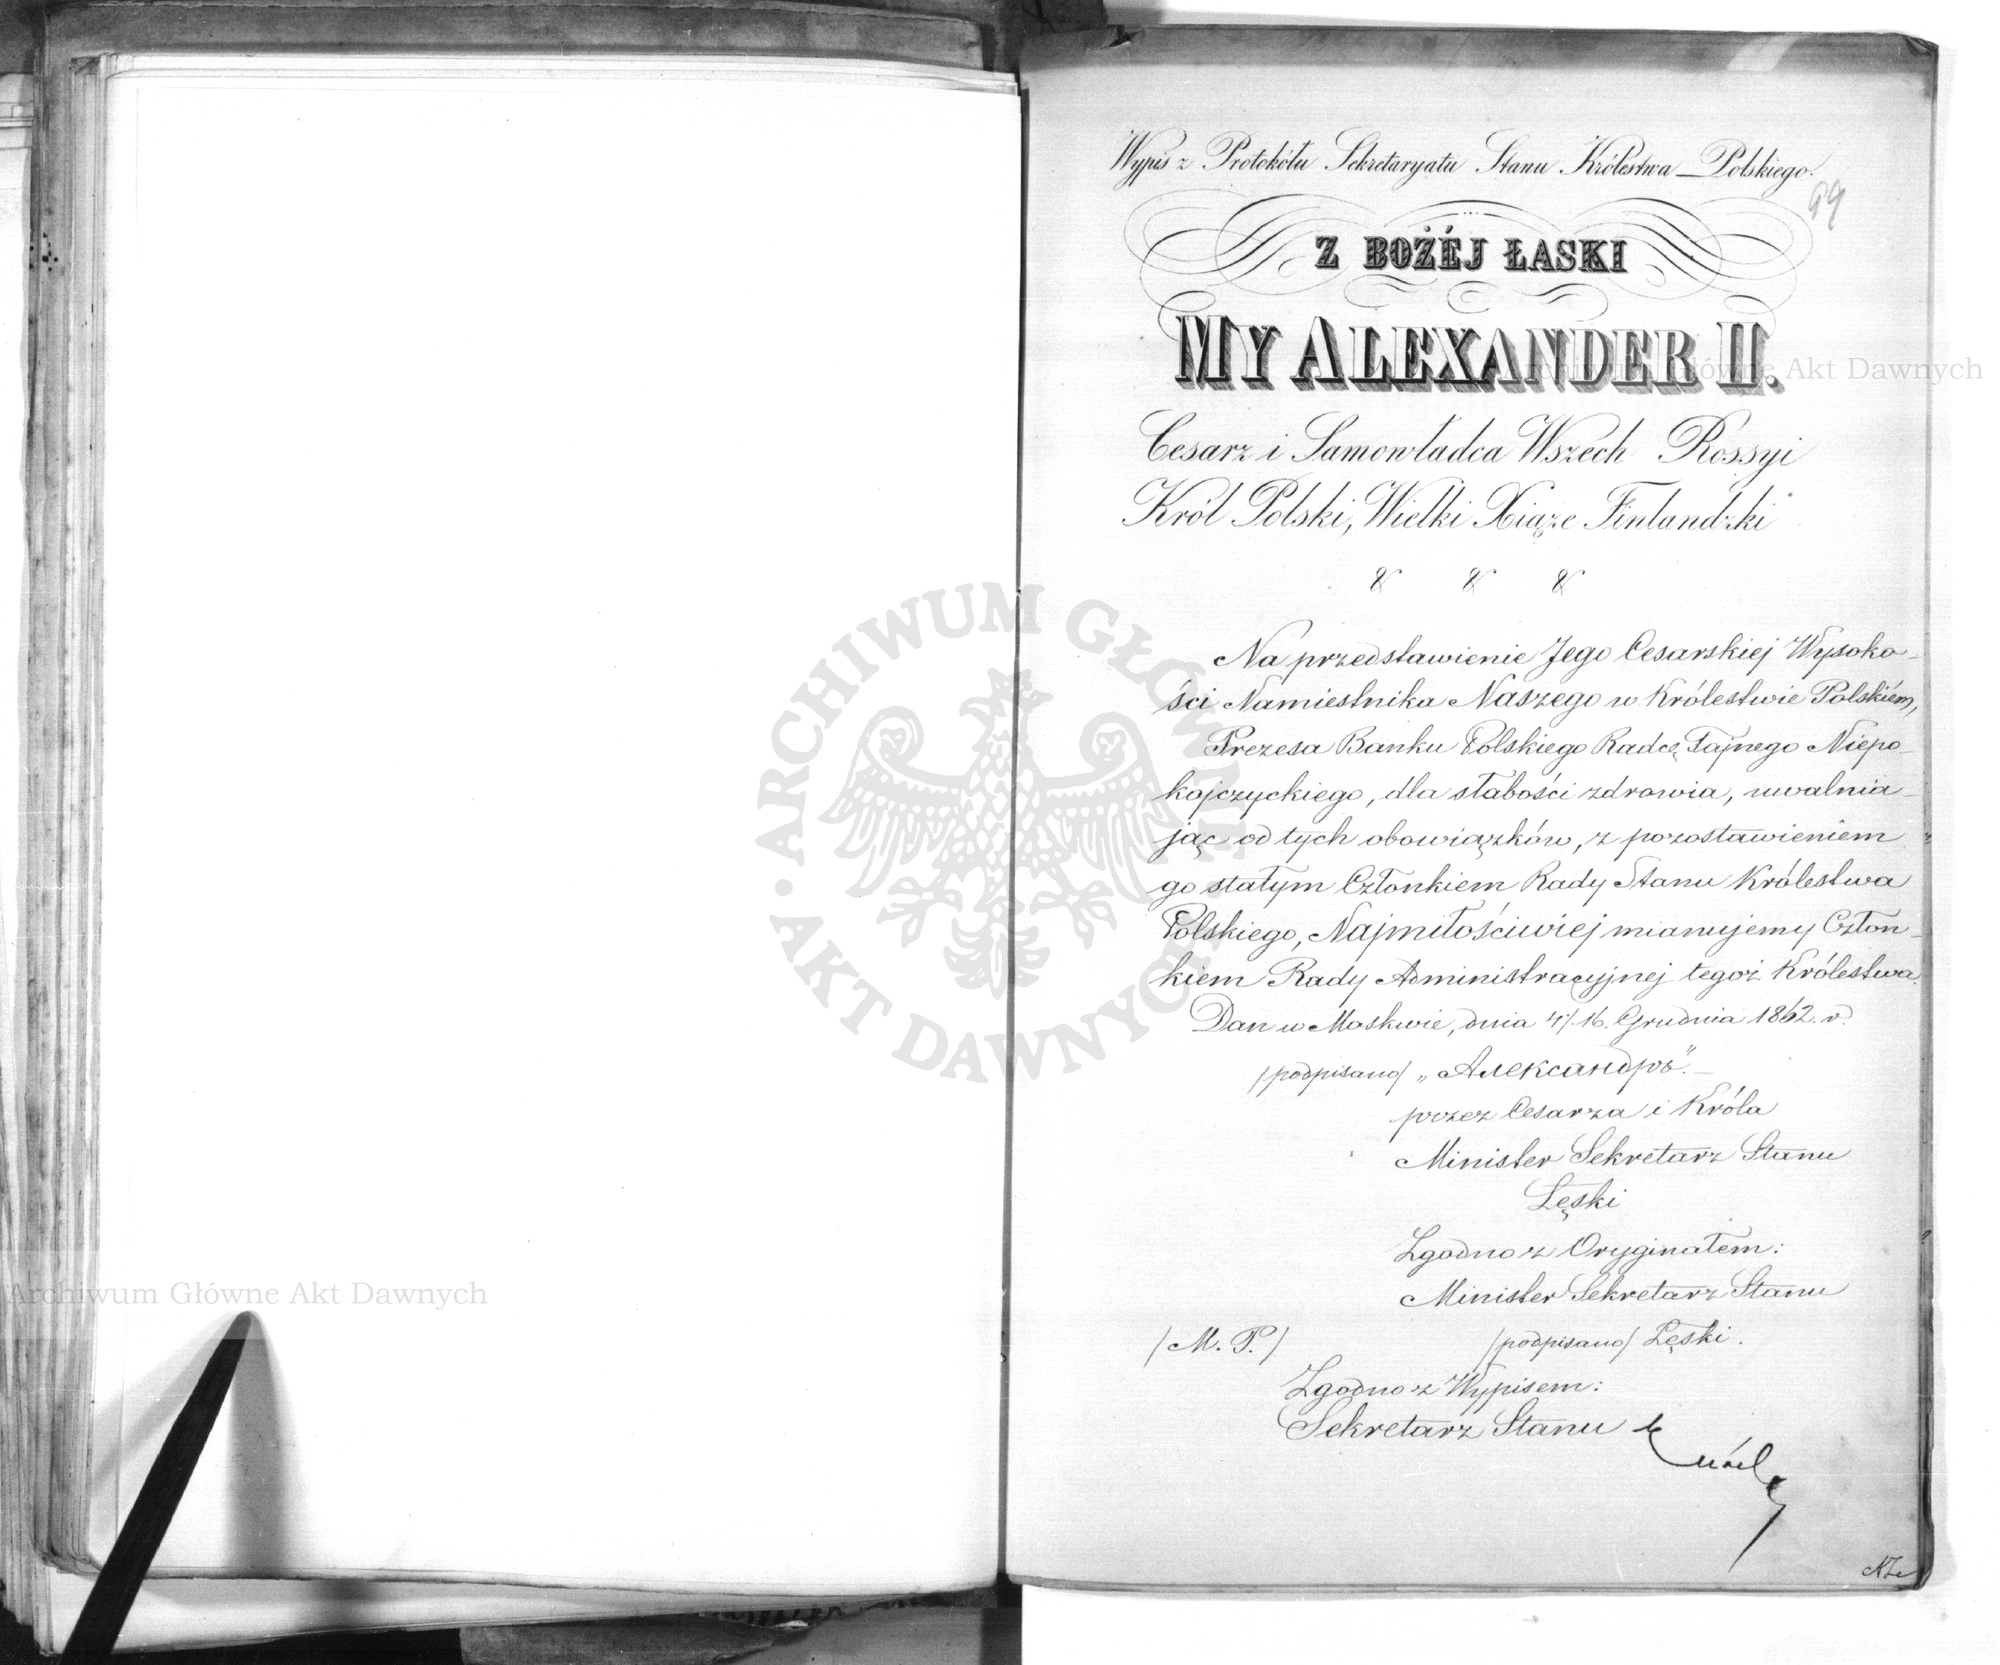 Wypis z Protokółu Sekretaryatu Stanu Królestwa Polskiego.
99
Z BOŻÉJ ŁASKI
MY ALEXANDER II.
Cesarz i Samowładca Wszech Rossyi
Król Polski, Wielki Xiąże Finlandzki
& & &
Na przedstawienie Jego Cesarskiej Wysoko-
ści Namiestnika Naszego w Królestwie Polskiém,
Prezesa Banku Polskiego Radcę Tajnego Niepo-
kojczyckiego, dla słabości zdrowia, uwalnia-
jąc od tych obowiązków, z pozostawieniem
go stałym Członkiem Rady Stanu Królestwa
Polskiego, Najmiłościwiej mianujemy Człon-
kiem Rady Administracyjnej tegoż Królestwa.
Dan w Moskwie, dnia 4/16. Grudnia 1862. r.
/podpisano/ „Александръ".—
przez Cesarza i Króla
Minister Sekretarz Stanu
Łęski
Zgodno z Oryginałem:
Minister Sekretarz Stanu
/M. P./ /podpisano/ Łęski.
Zgodno z Wypisem:
Sekretarz Stanu
ARCHIWUM GŁÓWNE AKT DAWNYCH
Archiwum Główne Akt Dawnych
Archiwum Główne Akt Dawnych